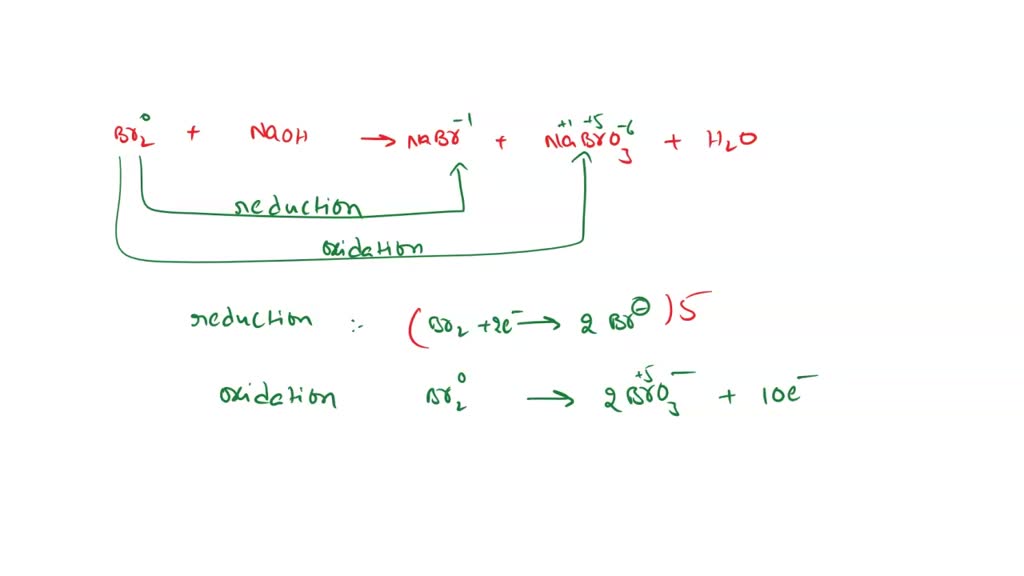 Br₂⁰ + NaOH → NaBr⁻¹ + Na⁺¹Br⁺⁵O₃⁻⁶ + H₂O
reduction
oxidation
reduction :- (Br₂ + 2e⁻ → 2 Br⊖) 5
oxidation Br₂⁰ → 2Br⁺⁵O₃⁻ + 10e⁻